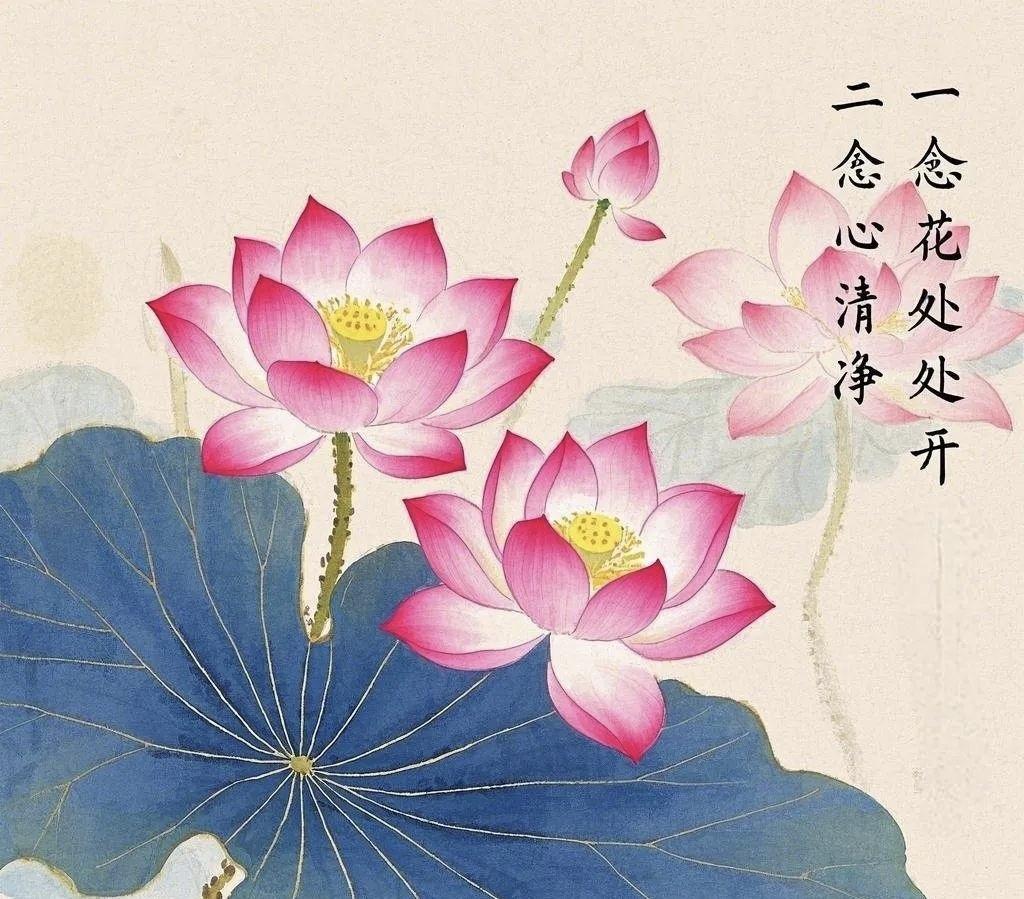 一念花处处开
二念心清净